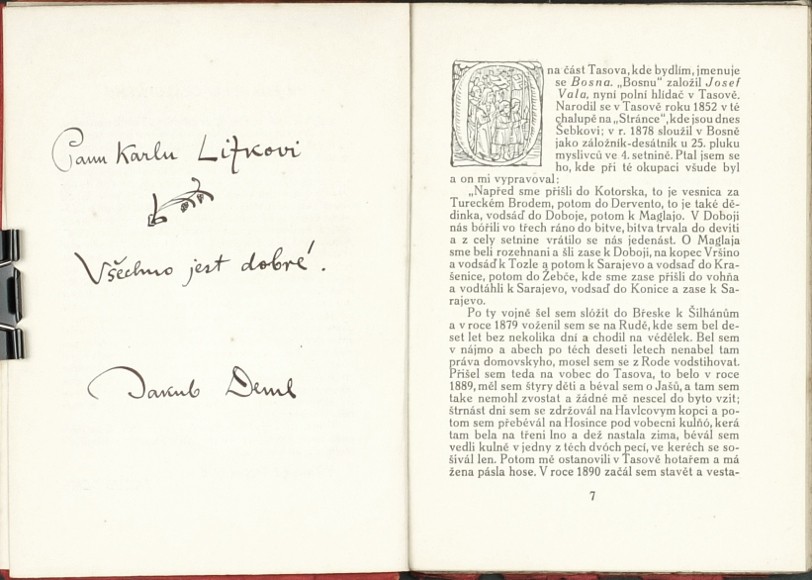 Panu Karlu Lifkovi
Všechno jest dobré!
Jakub Deml
Ona část Tasova, kde bydlím, jmenuje
se Bosna. „Bosnu“ založil Josef
Vala, nyní polní hlídač v Tasově.
Narodil se v Tasově roku 1852 v té
chalupě na „Stránce“, kde jsou dnes
Šebkovi; v r. 1878 sloužil v Bosně
jako záložník-desátník u 25. pluku
myslivců ve 4. setnině. Ptal jsem se
ho, kde při té okupaci všude byl
a on mi vypravoval:
„Napřed sme přišli do Kotorska, to je vesnica za
Tureckém Brodem, potom do Dervento, to je také dě-
dinka, vodsáď do Doboje, potom k Maglajo. V Doboji
nás bórili vo třech ráno do bitve, bitva trvala do devíti
a z cely setnine vrátilo se nás jedenást. O Maglaja
sme beli rozehnani a šli zase k Doboji, na kopec Vršino
a vodsáď k Tozle a potom k Sarajevo a vodsaď do Kra-
šenice, potom do Žebče, kde sme zase přišli do vohňa
a vodtáhli k Sarajevo, vodsaď do Konice a zase k Sa-
rajevo.
Po ty vojně šel sem slóžit do Břeske k Šilhánům
a v roce 1879 voženil sem se na Rudě, kde sem bel de-
set let bez nekolika dní a chodil na védělek. Bel sem
v nájmo a abech po těch deseti letech nenabel tam
práva domovskyho, mosel sem se z Rode vodstihovat.
Přišel sem teda na vobec do Tasova, to belo v roce
1889, měl sem štyry děti a béval sem o Jašů, a tam sem
take nemohl zvostat a žádné mě nescel do byto vzit;
štrnást dni sem se zdržoval na Havlcovym kopci a po-
tom sem přebéval na Hosince pod vobecní kulňó, kerá
tam bela na tření lno a dež nastala zima, béval sem
vedli kulně v jedny z těch dvóch pecí, ve keréch se so-
šivál len. Potom mě ostanovili v Tasově hotařem a má
žena pásla hose. V roce 1890 začál sem stavět a vesta-
7